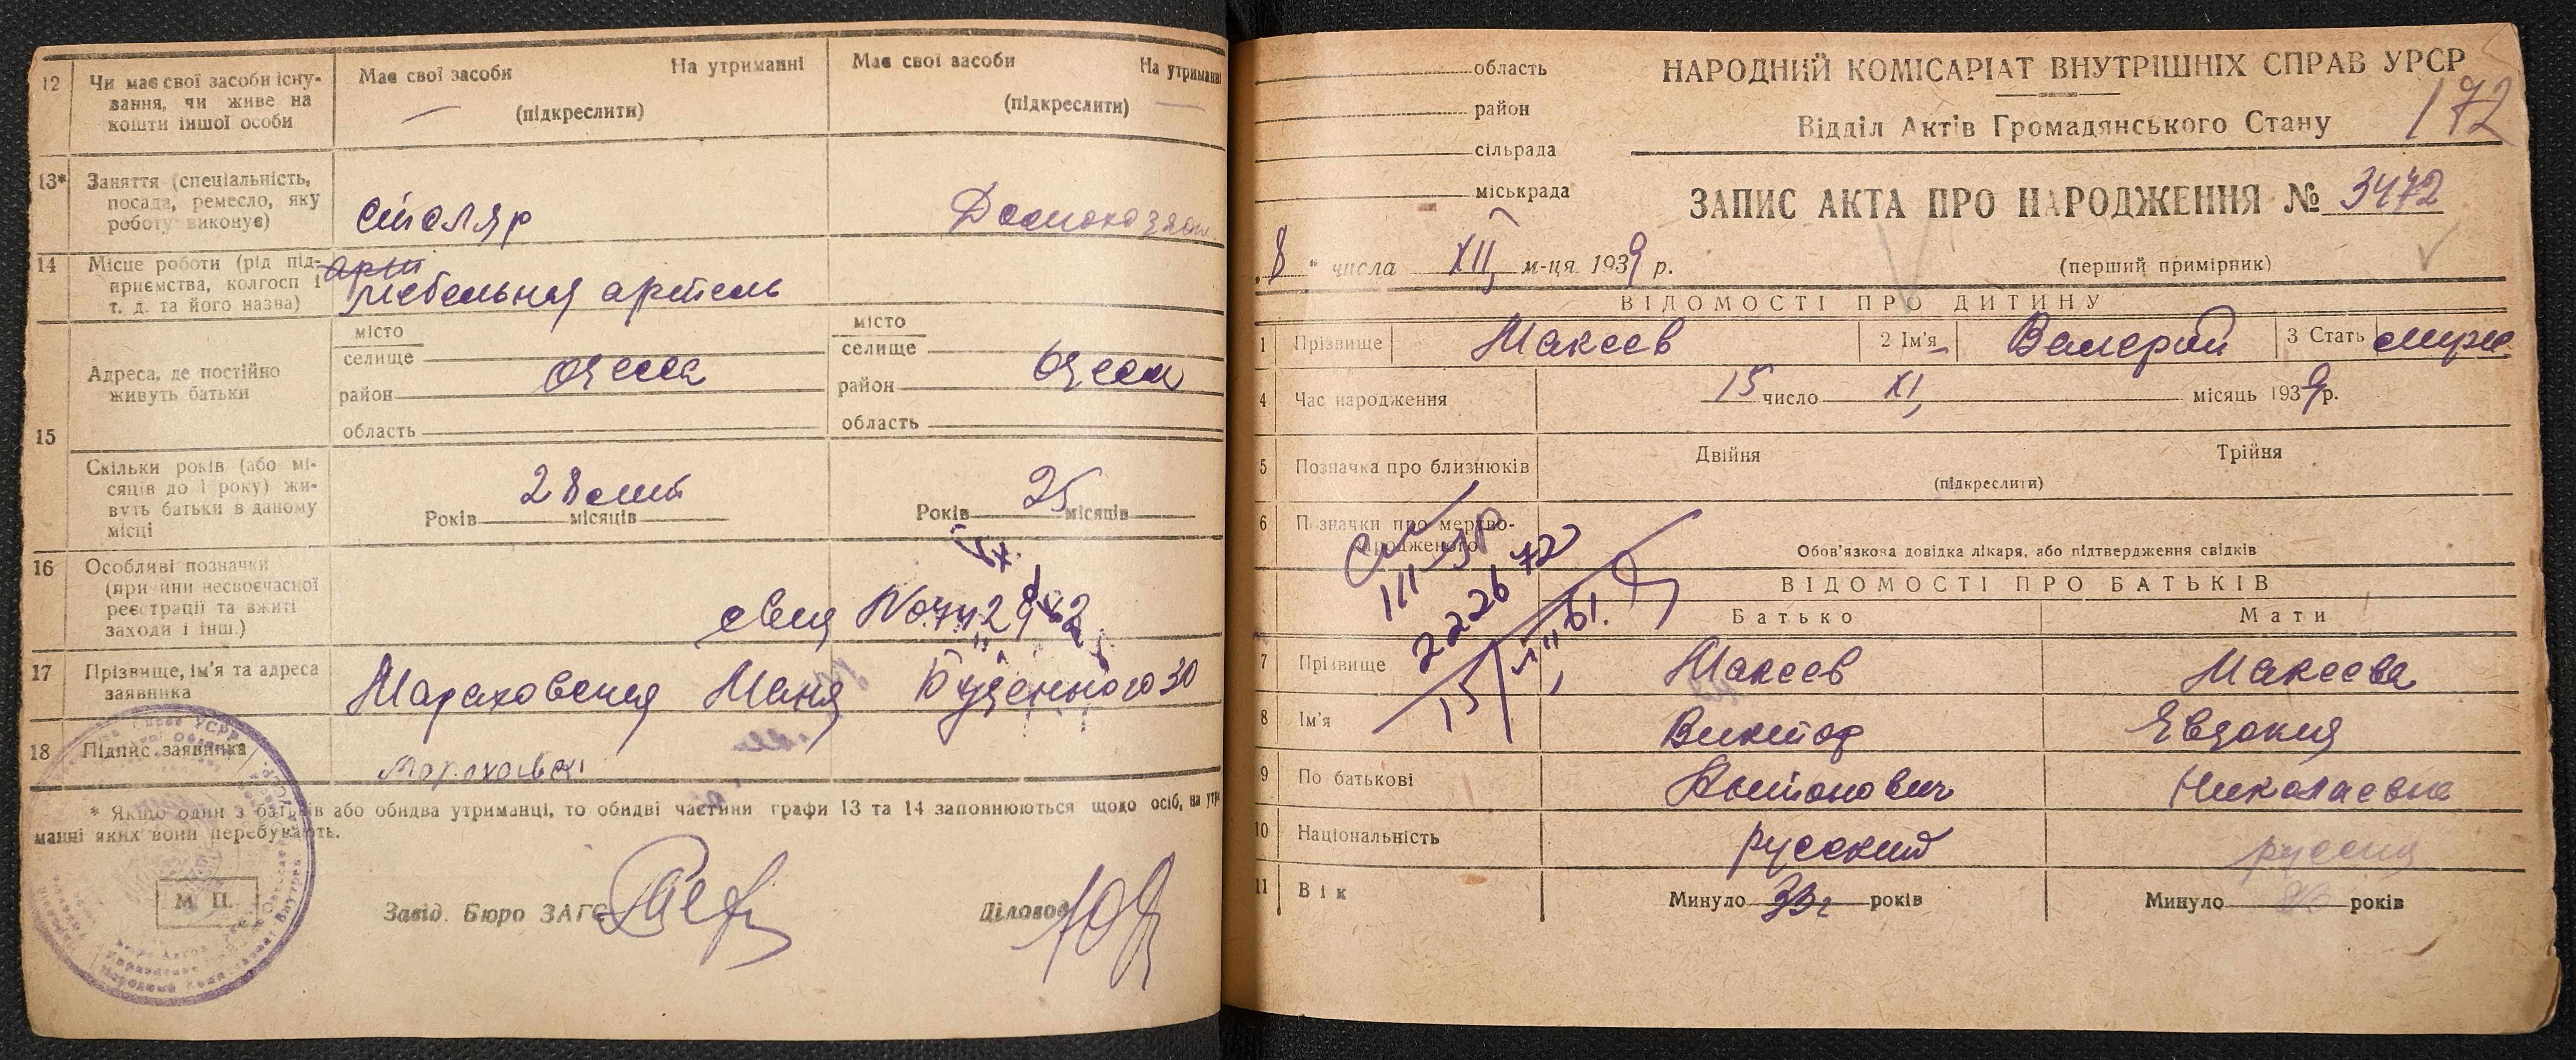 12 Чи має свої засоби існу-
вання, чи живе на
кошти іншої особи
Має свої засоби На утриманні
(підкреслити)
Має свої засоби На утриманні
(підкреслити)
13* Заняття (спеціальність,
посада, ремесло, яку
роботу виконує)
столяр
14 Місце роботи (рід під-
приємства, колгосп і
т. д. та його назва)
арт
мебельная артель
15 Адреса, де постійно
живуть батьки
місто
селище
район
область
Одесса
місто
селище
район
область
Одесса
Скільки років (або мі-
сяців до 1 року) жи-
вуть батьки в даному
місці
28 лет
Років місяців
25
Років місяців
16 Особливі позначки
(причини несвоєчасної
реєстрації та вжиті
заходи і інш.)
17 Прізвище, ім'я та адреса
заявника
Мараховская Маня Буденного 30
18 Підпис заявника
* Якщо один з батьків або обидва утриманці, то обидві частини графи 13 та 14 заповнюються щодо осіб, на утри
манні яких вони перебувають.
М. П.
Завід. Бюро ЗАГС
Діловод
область
район
сільрада
міськрада
НАРОДНИЙ КОМІСАРІАТ ВНУТРІШНІХ СПРАВ УРСР
172
Відділ Актів Громадянського Стану
ЗАПИС АКТА ПРО НАРОДЖЕННЯ № 3472
„8“ числа XII м-ця 1939 р.
(перший примірник)
ВІДОМОСТІ ПРО ДИТИНУ
1 Прізвище Макеев 2 Ім'я Валерий 3 Стать муж
4 Час народження 15 число XI, місяць 1939 р.
5 Позначка про близнюків Двійня Трійня
(підкреслити)
6 Позначки про мертво-
народженого
Обов'язкова довідка лікаря, або підтвердження свідків
222672
ВІДОМОСТІ ПРО БАТЬКІВ
Батько Мати
7 Прізвище Макеев Макеева
8 Ім'я Виктор Евдокия
9 По батькові Антонович Николаевна
10 Національність русский русская
11 Вік Минуло 33 г років Минуло років